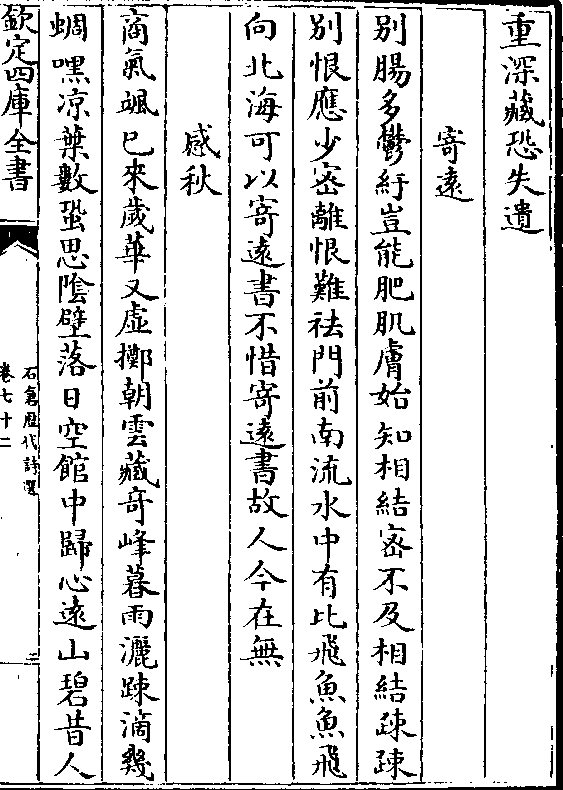 重深藏恐失遺
寄遠
别腸多鬱紆豈能肥肌膚始知相結宻不及相結踈踈
别恨應少宻離恨難袪門前南流水中有比飛魚魚飛
向北海可以寄逺書不惜寄逺書故人今在無
感秋
商氣颯已來歲華又虚擲朝雲藏奇峰暮雨灑踈滴幾
蜩嘿凉葉數蛩思陰壁落日空館中歸心遠山碧昔人
欽定四庫全書
石倉歷代詩選
卷七十二
三